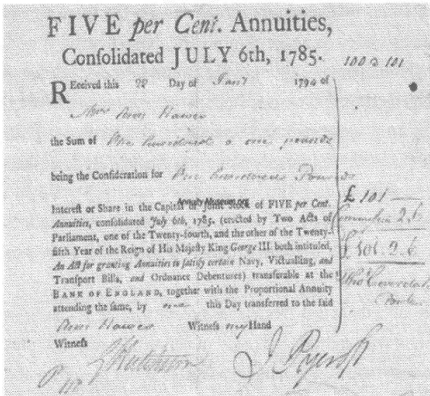 FIVE per Cent. Annuities,
Consolidated JULY 6th, 1785.
100 @ 101
REceived this 22 Day of Jany 1794 of
Mrs Ann Hawes
the Sum of One hundred & one pounds
being the Consideration for One hundred Pounds
Interest or Share in the Capital of FIVE per Cent.
£ 101
Annuities, consolidated July 6th, 1785. (erected by Two Acts of
2.6
Parliament, one of the Twenty-fourth, and the other of the Twenty-
fifth Year of the Reign of His Majesty King George III. both intituled,
£ 101.2.6
An Act for granting Annuities to satisfy certain Navy, Victualling, and
Transport Bills, and Ordnance Debentures) transferable at the
BANK of ENGLAND, together with the Proportional Annuity
attending the same, by me this Day transferred to the said
Ann Hawes Witness my Hand
Witness